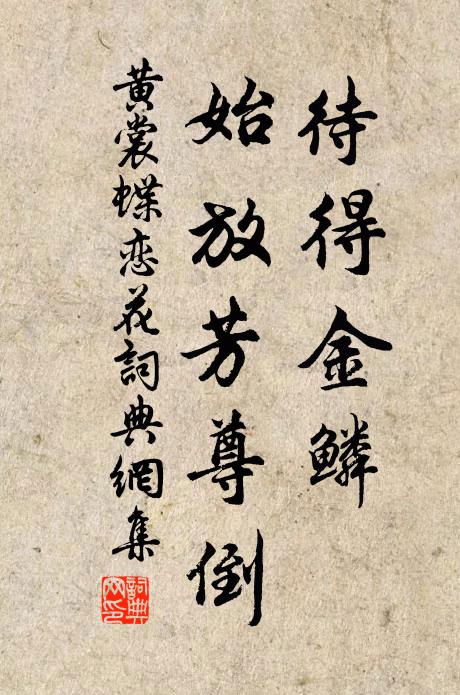 待得金鳞
始放芳尊倒
黄裳蝶恋花詞典網集
詞典網印